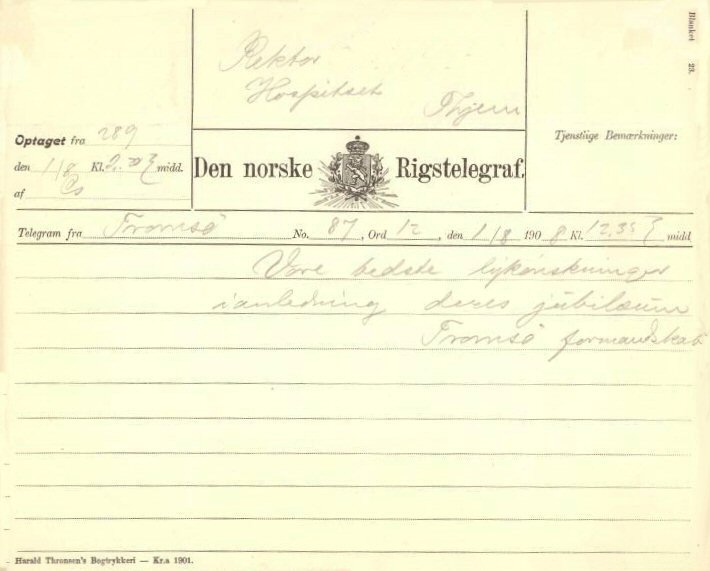 Blanket 23.
Rektor
Hospitset
Thjem
Optaget fra 289
den 1/8 Kl. midd.
af
Den norske Rigstelegraf.
Tjenstlige Bemærkninger:
Telegram fra Tromsö No. 87, Ord 12, den 1/8 1908 Kl. 12.35 midd
Vore bedste lykönskninger
ianledning deres jubilæum
Tromsö formandskab
Harald Thronsen's Bogtrykkeri — Kr.a 1901.